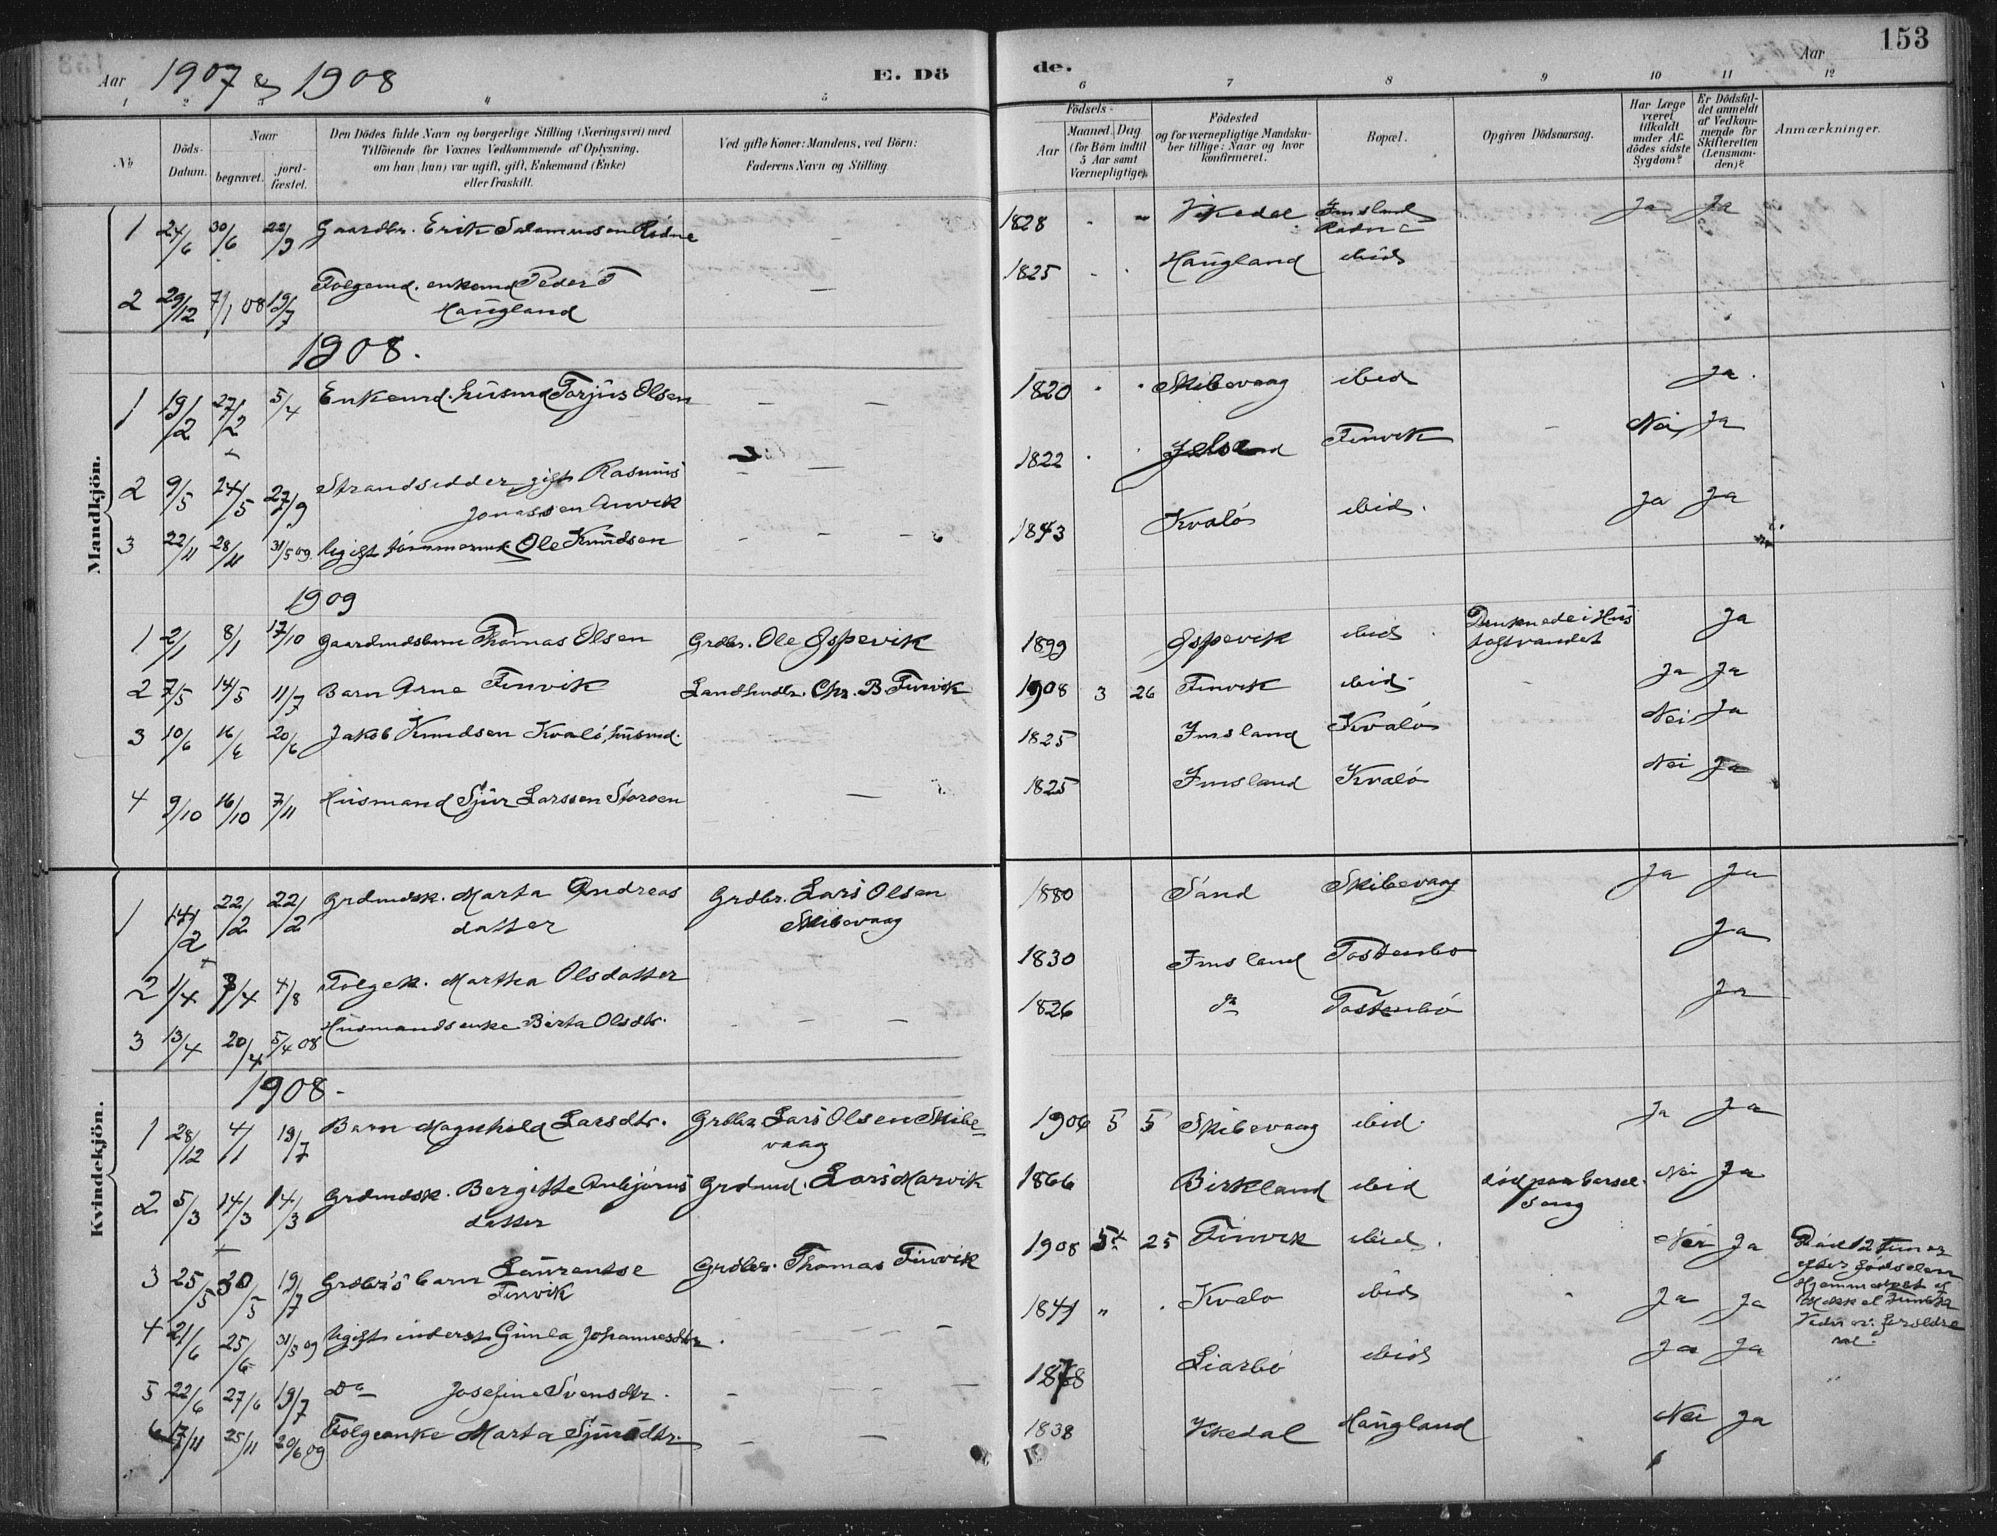 153
Aar 1907 & 1908
E. Dö
de.
Aar
1 2 3 4 5
6 7 8 9 10 11 12
No
Döds-
Datum.
Naar
begravet.
jord-
fæstet.
Den Dödes fulde Navn og borgerlige Stilling (Næringsvei) med
Tilföiende for Voxnes Vedkommende af Oplysning,
om han (hun) var ugift, gift, Enkemand (Enke)
eller fraskilt.
Ved gifte Koner: Mandens, ved Börn:
Faderens Navn og Stilling.
Födsels-
Aar
Maaned. Dag
(for Börn indtil
5 Aar samt
Værnepligtige).
Födested
og for værnepligtige Mandska-
ber tillige: Naar og hvor
konfirmeret.
Bopæl.
Opgiven Dödsaarsag.
Har Læge
været
tilkaldt
under Af-
dödes sidste
Sygdom?
Er Dödsfal-
det anmeldt
af Vedkom-
mende for
Skifteretten
(Lensman-
den)?
Anmærkninger.
Mandkjön.
1 24/6 30/6 22/9 Gaardbr. Erik Salamonsen Rødne — 1828 Vikedal Imsland Rødne Ja Ja
2 29/12 7/1 08 19/7 Folgemd. enkemd Peder T Haugland — 1825 Haugland ibid
1908.
1 19/2 27/2 5/4 Enkemd. husmd Torjus Olsen — — 1820 Skibevaag ibid Ja
2 9/5 24/5 27/9 Strandsidder gift Rasmus Jonassen Anvik — — 1822 Jelsa Finvik — Nei Ja
3 22/11 28/11 31/5 09 Ugift tømmermd Ole Knudsen — — 1843 Kvalø ibid. Ja Ja
1909
1 2/1 8/1 17/10 Gaardmdsbarn Thomas Olsen Grdbr. Ole Ospevik 1899 Ospevik ibid Druknede i Hustoftvandet Ja
2 7/5 14/5 11/7 Barn Arne Finvik Landhndlr. Chr. B. Finvik 1908 3 26 Finvik ibid Ja Ja
3 10/6 16/6 20/6 Jakob Knudsen Kvalø, husmd. 1825 Imsland Kvalø Nei Ja
4 9/10 16/10 7/11 Husmand Sjur Larssen Storøen — — 1825 Imsland Kvalø Nei Ja
Kvindekjön.
1 14/2 22/2 22/2 Grdmdsk. Marta Andreas datter Grdbr. Lars Olsen Skibevaag 1880 Sand Skibevaag Ja Ja
2 1/4 7/4 4/8 Folgek. Martha Olsdatter 1830 Imsland Tostenbø Ja
3 13/4 20/4 5/4 08 Husmandsenke Berta Olsdtr. — — — 1826 do Tostenbø Ja
1908.
1 28/12 4/1 19/7 Barn Magnhild Larsdtr. Grdbr. Lars Olsen Skibevaag 1906 5 5 Skibevaag ibid. Ja Ja
2 5/3 14/3 14/3 Grdmdsk. Bergitte Anbjørns datter Grdmd. Lars Marvik 1866 Birkland ibid død paa barselseng Nei Ja
3 25/5 30/5 19/7 Grdbr's barn Laurentse Finvik Grdbr. Thomas Finvik 1908 5 25 Finvik ibid. Nei Ja Død 12 timer efter fødselen Hjemmedøbt af
4 21/6 25/6 31/5 09 Ugift inderst Gunla Johannesdtr. — — 1841 „ Kvalø ibid Ja Ja
5 22/6 27/6 19/7 Do Josefine Svensdtr. — — — 1878 Liarbø ibid Ja Ja
6 17/11 25/11 20/6 09 Folgeenke Marta Sjursdtr. — — 1838 Vikedal Haugland Nei Ja